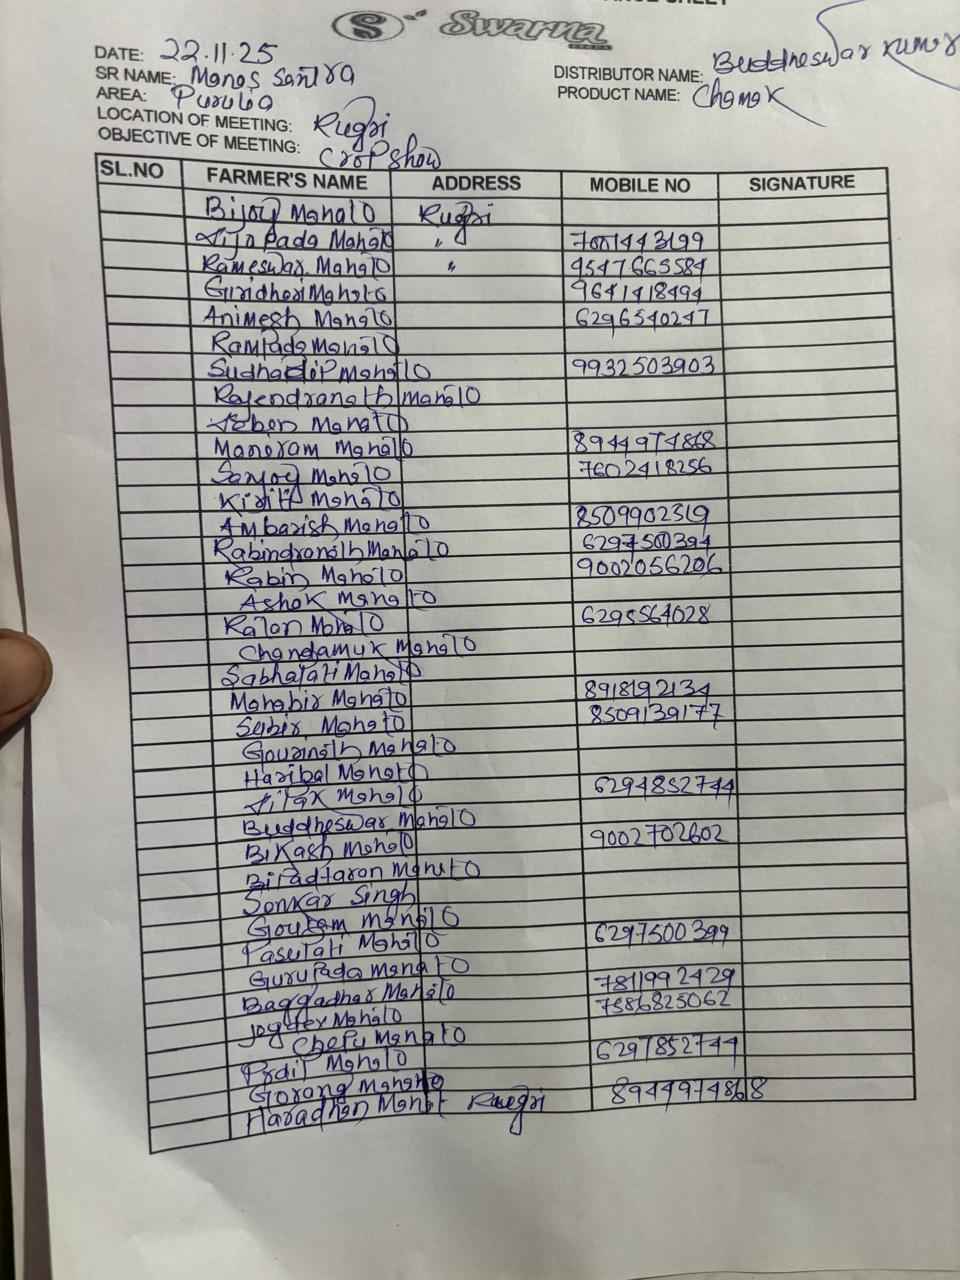 SHEET
Swarna
DATE: 22.11.25
SR NAME: Manas Santra
DISTRIBUTOR NAME: Buddheswar Kumar
AREA: Purulia
PRODUCT NAME: Chamak
LOCATION OF MEETING: Rugri
OBJECTIVE OF MEETING: Crop show
SL.NO FARMER'S NAME ADDRESS MOBILE NO SIGNATURE
Bijoy Mahato Rugri
Pada Mahato " 7001443199
Rameswar Mahato " 9547665584
Giridhari Mahato 9641418494
Animesh Mahato 6296540247
Rampada Mahato
Sudhadip Mahato 9932503903
Rajendranath Mahato
Mahato
Manoram Mahato 8944974868
Sanjoy Mahato 7602418256
Kiriti Mahato
Ambarish Mahato 8509902519
Rabindranath Mahato 6297500394
Rabin Mahato 9002056206
Ashok Mahato
Ratan Mahato 6295564028
Chandamuk Mahato
Sabhapati Mahato
Mahabir Mahato 8918192134
Subir Mahato 8509139177
Gourinath Mahato
Haribal Mahato
Tilak Mahato 6294852744
Buddheswar Mahato
Bikash Mahato 9002702602
Bipadtaron Mahato
Sonkar Singh
Goutam Mahato
Pasupati Mahato 6297500399
Gurupada Mahato
Baggadhar Mahato 7811992429
Mahato 7586825062
Chepu Mahato
Prdip Mahato 6297852744
Gorang Mahato
Haradhan Mahat Rugri 8944974868